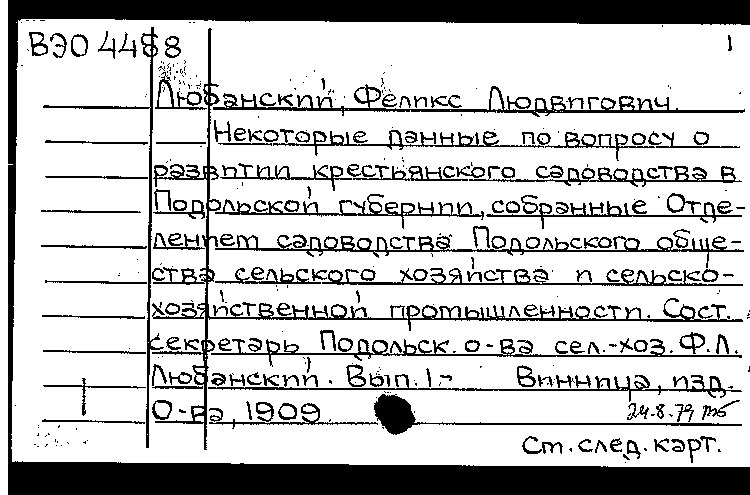 ВЭО 4488 1
Любанский, Феликс Людвигович.
Некоторые данные по вопросу о
развитии крестьянского садоводства в
Подольской губернии, собранные Отде-
лением садоводства Подольского обще-
ства сельского хозяйства и сельско-
хозяйственной промышленности. Сост.
секретарь Подольск. о-ва сел.-хоз. Ф.Л.
Любанский. Вып. 1-   Винница, изд.
О-ва, 1909
24.8.79
Ст. след. карт.